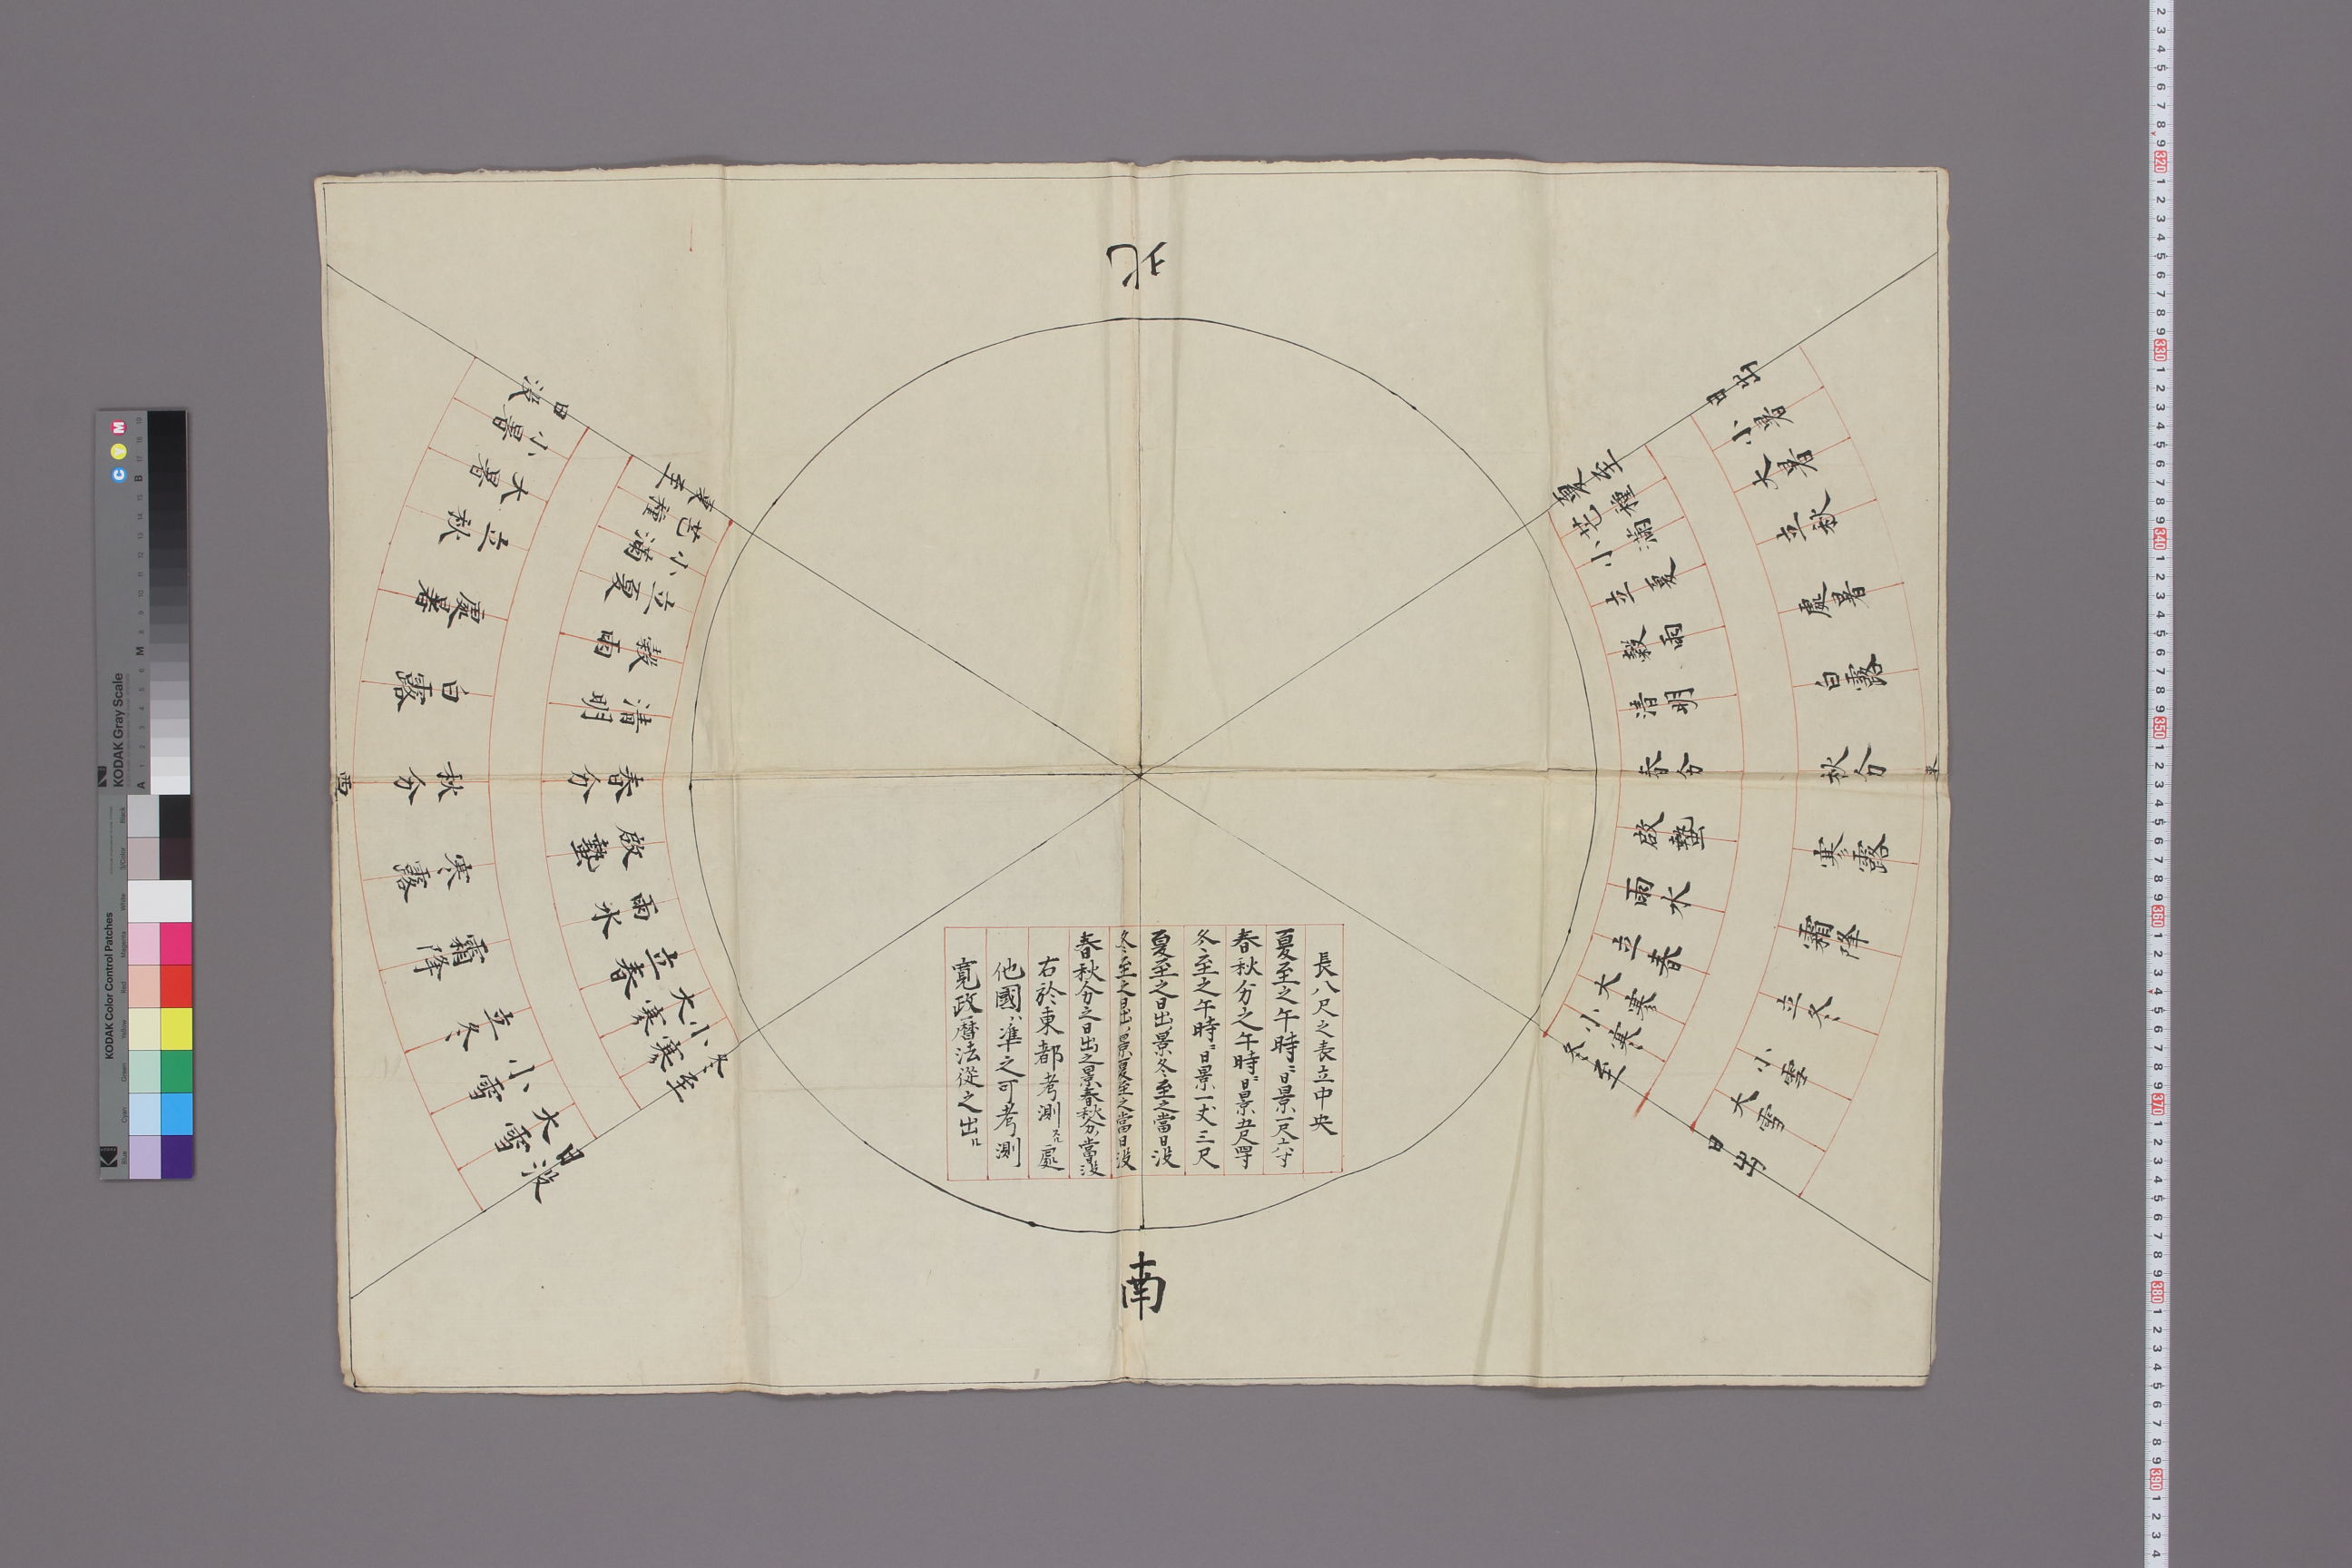 北
日出
小暑
大暑
立秋
處暑
白露
秋分
寒露
霜降
立冬
小雪
大雪
日出
夏至
芒種
小滿
立夏
穀雨
清明
春分
啟蟄
雨水
立春
大寒
小寒
冬至
東
長八尺之表立中央
夏至之午時ニ日景一尺六寸
春秋分之午時ニ日景五尺四寸
冬至之午時ニ日景一丈三尺
夏至之日出景冬至之當日没
冬至之日出景夏至之當日没
春秋分之日出之景春秋分當没
右於東都考測スル處
他國ハ準之可考測
寛政暦法從之出ル
夏至
芒種
小滿
立夏
穀雨
清明
春分
啟蟄
雨水
立春
大寒
小寒
冬至
日没
小暑
大暑
立秋
處暑
白露
秋分
寒露
霜降
立冬
小雪
大雪
日没
西
南
KODAK Gray Scale
C Y M
A 1 2 3 4 5 6 M 8 9 10 11 12 13 14 15 B 17 18 19
KODAK Color Control Patches
Blue Cyan Green Yellow Red Magenta White 3/Color Black
320
330
340
350
360
370
380
390